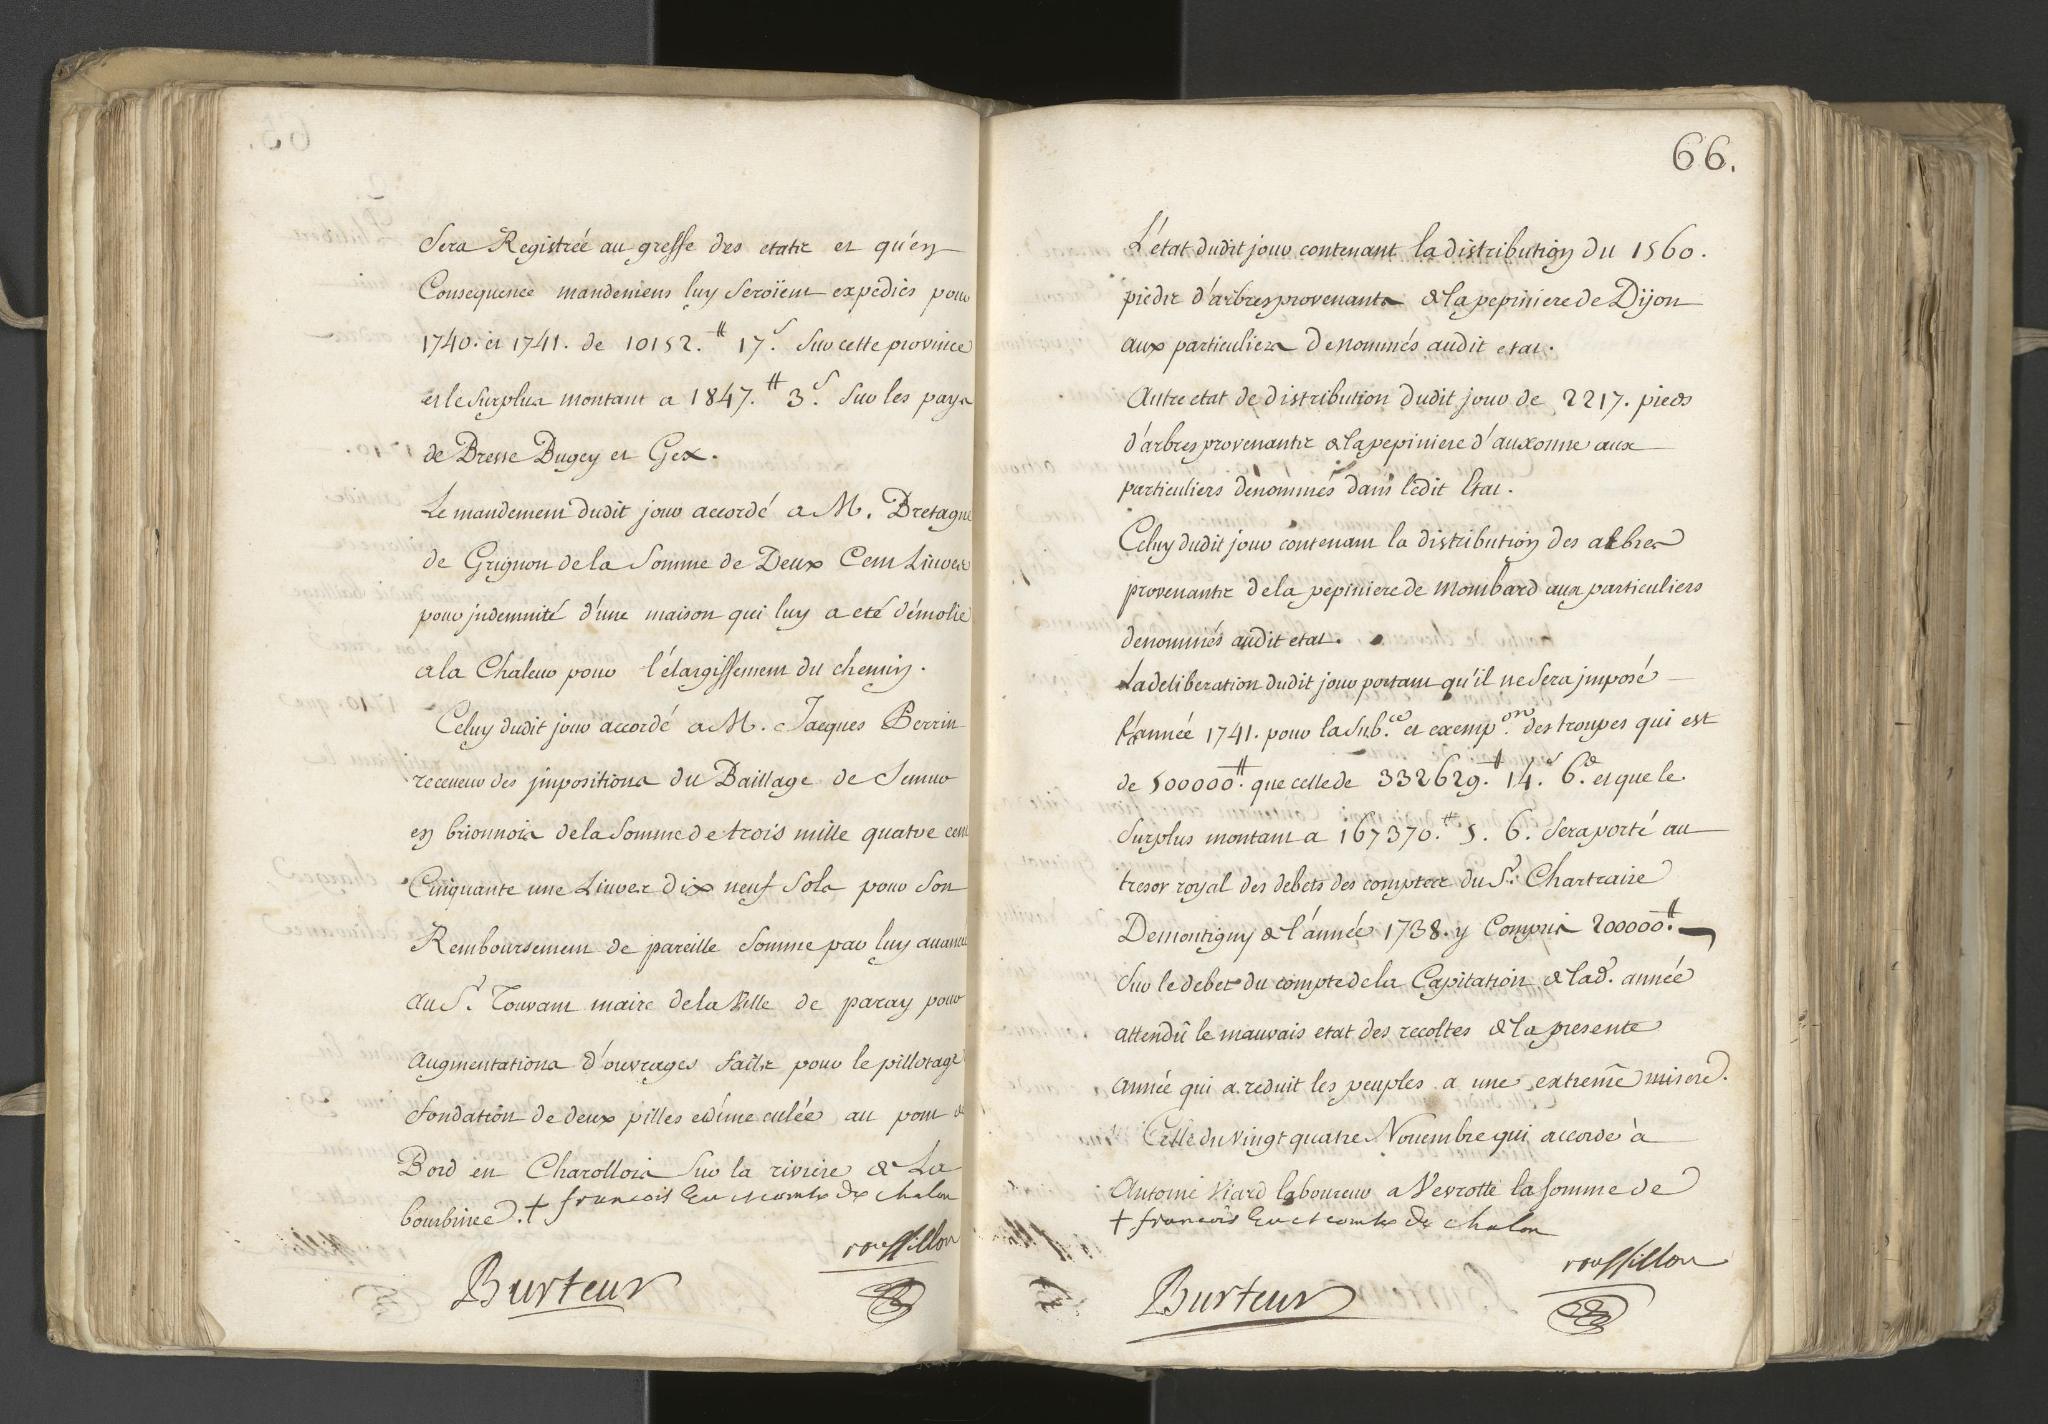 Sera Registrée au greffe des etats et qu'en
Consequence mandemens luy seroient expediés pour
1740. et 1741. de 10152.# 17.s Sur cette province
et le surplus montant a 1847.# 3.s sur les pays
de Bresse Bugey et Gex.
Le mandement dudit jour accordé a M. Bretagne
de Grignon de la Somme de Deux Cent Livres
pour jndemnité d'une maison qui luy a eté démolie
a la Chaleur pour l'élargissement du chemin.
Celuy dudit jour accordé a M. Jacques Perrin
receveur des jmpositions du Baillage de Semur
en brionnois de la Somme de trois mille quatre cent
Cinquante une Livres dix neuf sols pour son
Remboursement de pareille somme par luy avancée
au Sr. Touvant maire de la Ville de paray pour
augmentations d'ouvrages faits pour le pillotage
fondation de deux pilles et d'une culée au pont de
Bord en Charollois sur la riviere de La
bourbince. + francois Eu et comte de chalon
Burteur
rouffillon
66.
L'état dudit jour contenant la distribution du 1560.
pieds d'arbres provenants de la pepiniere de Dijon
aux particuliers denommés audit etat.
Autre etat de distribution dudit jour de 2217. pieds
d'arbres provenants de la pepiniere d'auxonne aux
particuliers dénommés dans ledit Etat.
Celuy dudit jour contenant la distribution des arbres
provenants de la pepiniere de Montbard aux particuliers
denommés audit etat.
La deliberation dudit jour portant qu'il ne sera jmposé
l'année 1741. pour la sub.ce et exemp.on des troupes qui est
de 500000.# que celle de 332629.# 14.s 6.d et que le
surplus montant a 167370.# 5. 6. sera porté au
tresor royal des debets des comptes du Sr. Chartraire
Demontigny de l'année 1738. y Compris 200000.#
sur le debet du compte de la Capitation de lad. année
attendû le mauvais etat des recoltes de la presente
année qui a reduit les peuples a une extremê misere.
Celle du vingt quatre Novembre qui accorde à
Antoine Viard laboureur a Vevrotte la somme de
+ francois Eu et comte de chalon
Burteur
rouffillon